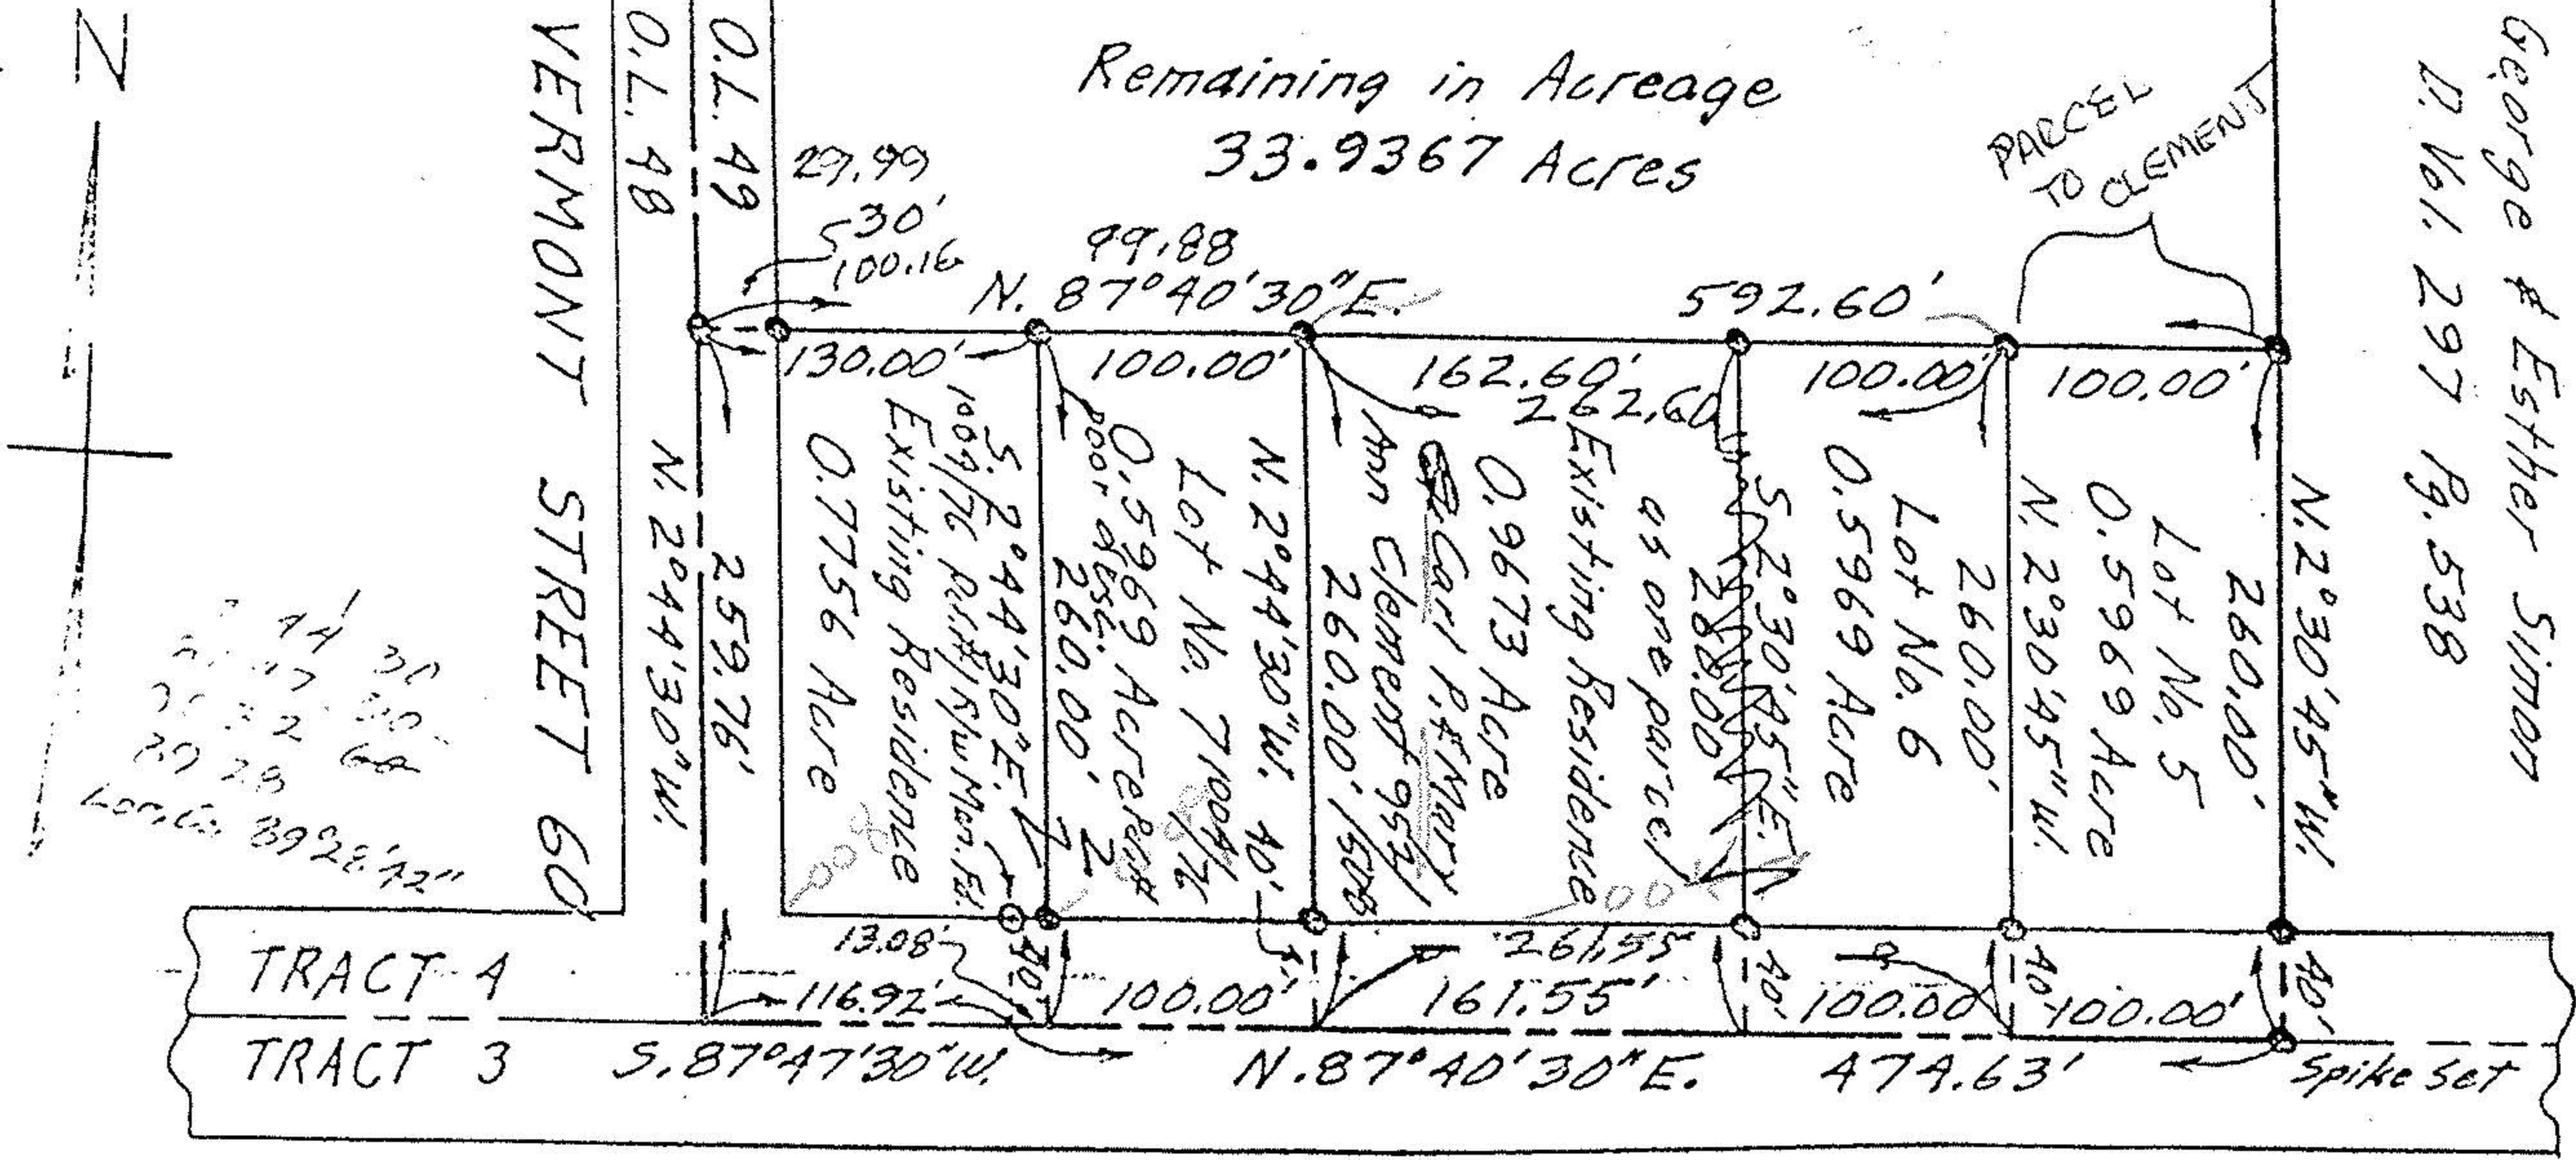 N
VERMONT STREET 60'
O.L. 48
O.L. 49
Remaining in Acreage
33.9367 Acres
PARCEL
TO CLEMENT
George & Esther Simon
D. Vol. 297 Pg. 538
29.99
30'
100.16
99.88
N. 87°40'30"E.
592.60'
130.00'
100.00'
162.60'
262.60
100.00'
100.00'
N. 2°44'30"W.
259.76'
0.7756 Acre
Existing Residence
S. 2°44'30"E.
260.00'
poor desc.
0.5969 Acre
Lot No. 7
N. 2°44'30"W.
260.00'
Ann Clement
Carl P. & Mary
0.9673 Acre
Existing Residence
as one parcel
S. 2°30'45"E.
260.00
0.5969 Acre
Lot No. 6
260.00'
N. 2°30'45"W.
0.5969 Acre
Lot No. 5
260.00'
N. 2°30'45"W.
TRACT 4
13.08'
40'
40'
261.55
40'
40'
40'
116.92'
100.00'
161.55'
100.00'
100.00'
TRACT 3
S. 87°47'30"W.
N. 87°40'30"E.
474.63'
Spike Set